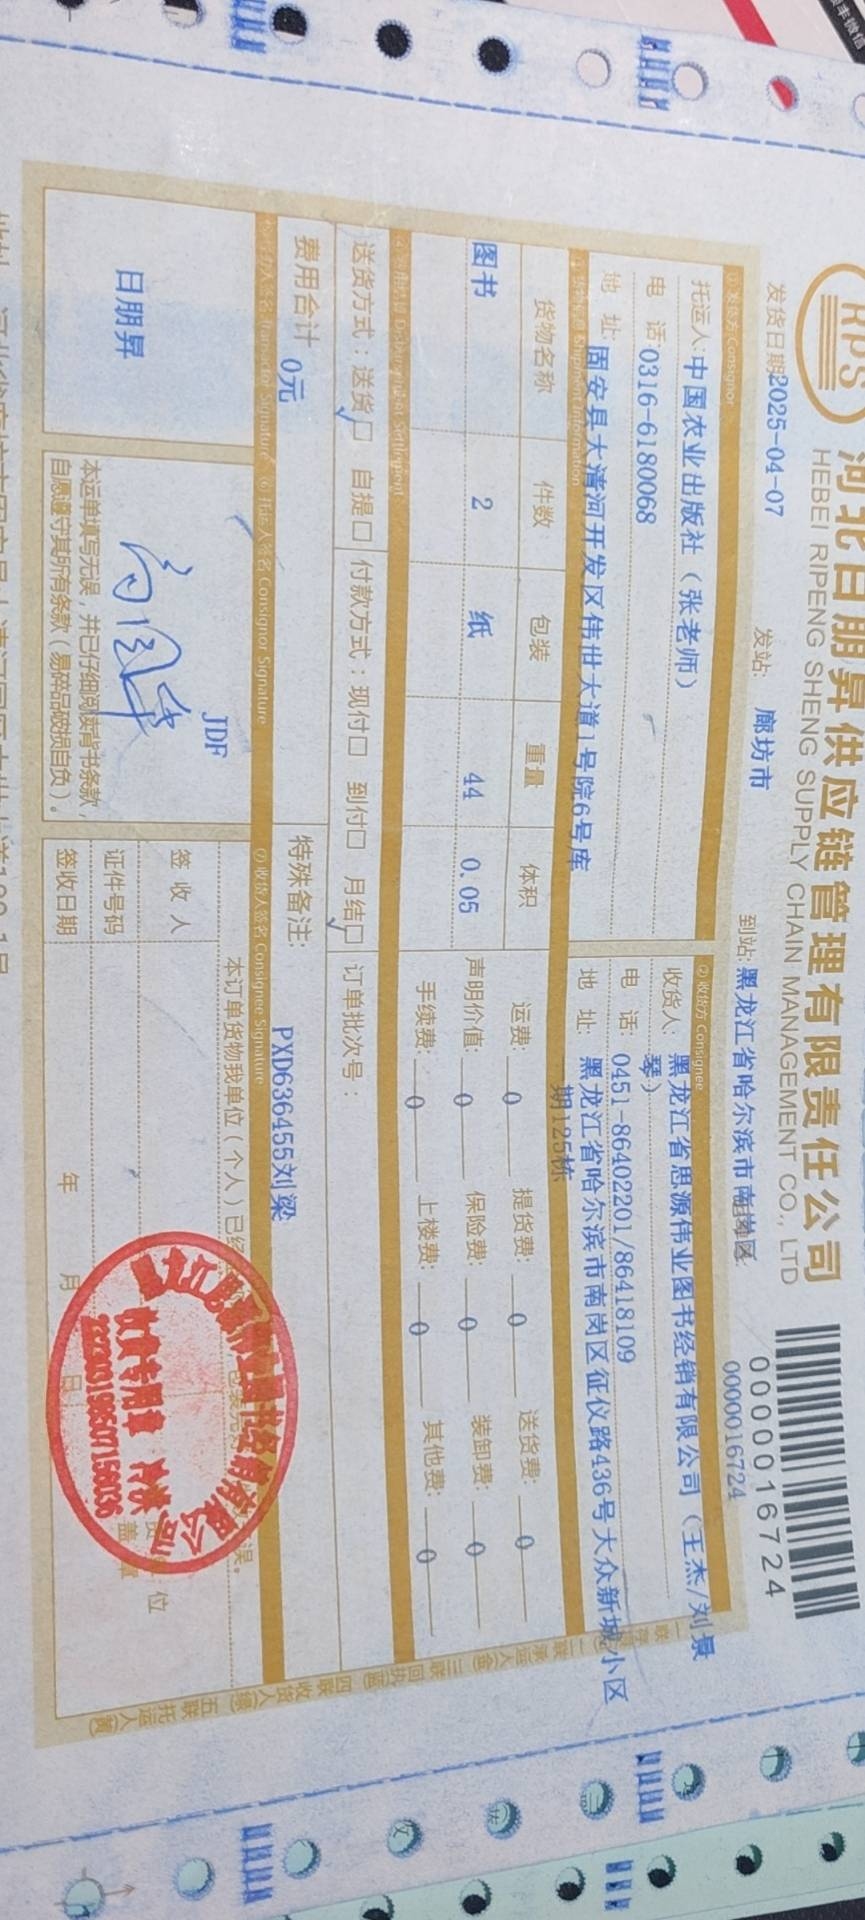 RPS
河北日朋昇供应链管理有限责任公司
HEBEI RIPENG SHENG SUPPLY CHAIN MANAGEMENT CO., LTD
0000016724
0000016724
发货日期2025-04-07 发站: 廊坊市 到站:黑龙江省哈尔滨市南岗区
① 发货方 Consignor
托运人:中国农业出版社（张老师）
电 话:0316-6180068
地 址:固安县大清河开发区伟世大道1号院6号库
② 收货方 Consignee
收货人:黑龙江省思源伟业图书经销有限公司（王杰/刘景
琴）
电 话:0451-86402201/86418109
地 址:黑龙江省哈尔滨市南岗区征仪路436号大众新城小区
一期125栋
Shipment Information
货物名称 件数 包装 重量 体积
图书 2 纸 44 0.05
运费: 0 提货费: 0 送货费: 0
声明价值: 0 保险费: 0 装卸费: 0
手续费: 0 上楼费: 0 其他费: 0
送货方式：送货☑ 自提☐ 付款方式：现付☐ 到付☐ 月结☑ 订单批次号：
费用合计 0元
特殊备注: PXD636455刘梁
Transactor Signature
⑥ 托运人签名 Consignor Signature
⑦ 收货人签名 Consignee Signature
日朋昇
JDF
本运单填写无误，并已仔细阅读背书条款，
自愿遵守其所有条款（易碎品破损自负）。
本订单货物我单位（个人）已经
误。
签 收 人
证件号码
签收日期 年 月 日
位
盖 章
收货专用章
一联
二联
三联
四联 收货人
五联 托运人